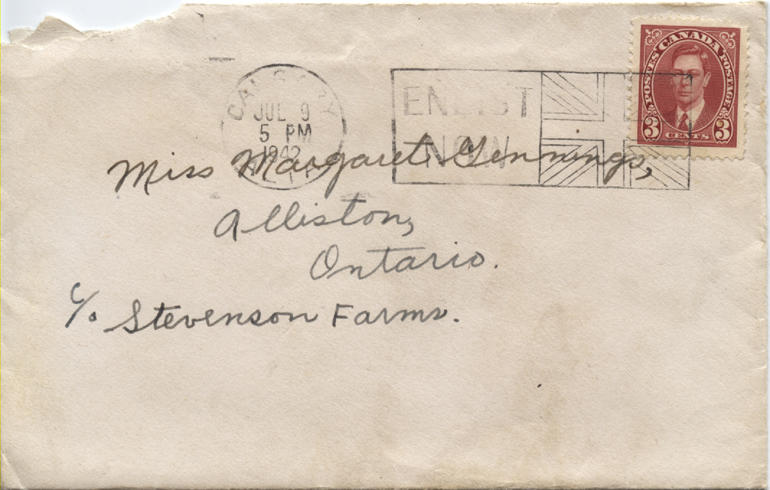 POSTES CANADA POSTAGE
3 CENTS 3
CALGARY
JUL 9
5 PM
1942
ENLIST
NOW
Miss Margaret Jennings,
Alliston,
Ontario.
c/o Stevenson Farms.